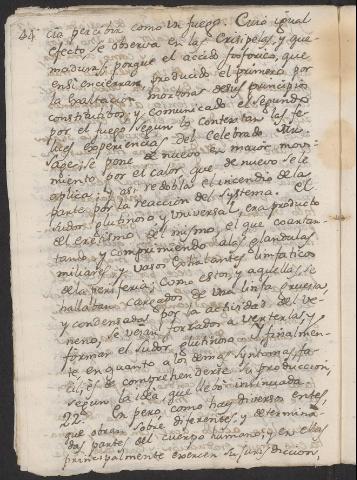 44
cia percibir como un fuego. Cuio igual
efecto se observa en las Erisipelas, y que-
maduras, porque el accido fosforico, que
en si encierran, producido el primero por
la exaltacion morbosa de sus principios
constitutibos, y comunicado el segundo
por el fuego segun lo contextan las fe-
lices experiencias del celebrado
sage; se pone de nuevo en maior movi-
miento por el calor, que de nuevo se le
aplica; y asi redobla el incendio de la
parte por la reaccion del systema. El
sudor glutinoso y universal, era producto
del erethismo del mismo, el que coartan-
do, y comprimiendo a las glandulas
miliares, y vasos exhalantes linfaticos
de la periferia; como estos, y aquellas, se
hallaban cargados de una linfa gruesa,
y condensada por la actividad del ve-
neno, se veian forzados a verterlas, y
formar el sudor glutinoso. Y finalmen-
te en quanto a los demas symtomas fa-
cil es de comprehenderse su produccion,
segun la idea que llebo insinuada.
22. Empero, como hay diversos entes,
que obran sobre diferentes, y determina-
das partes del cuerpo humano, y en ellas
principalmente exercen su jurisdiccion,